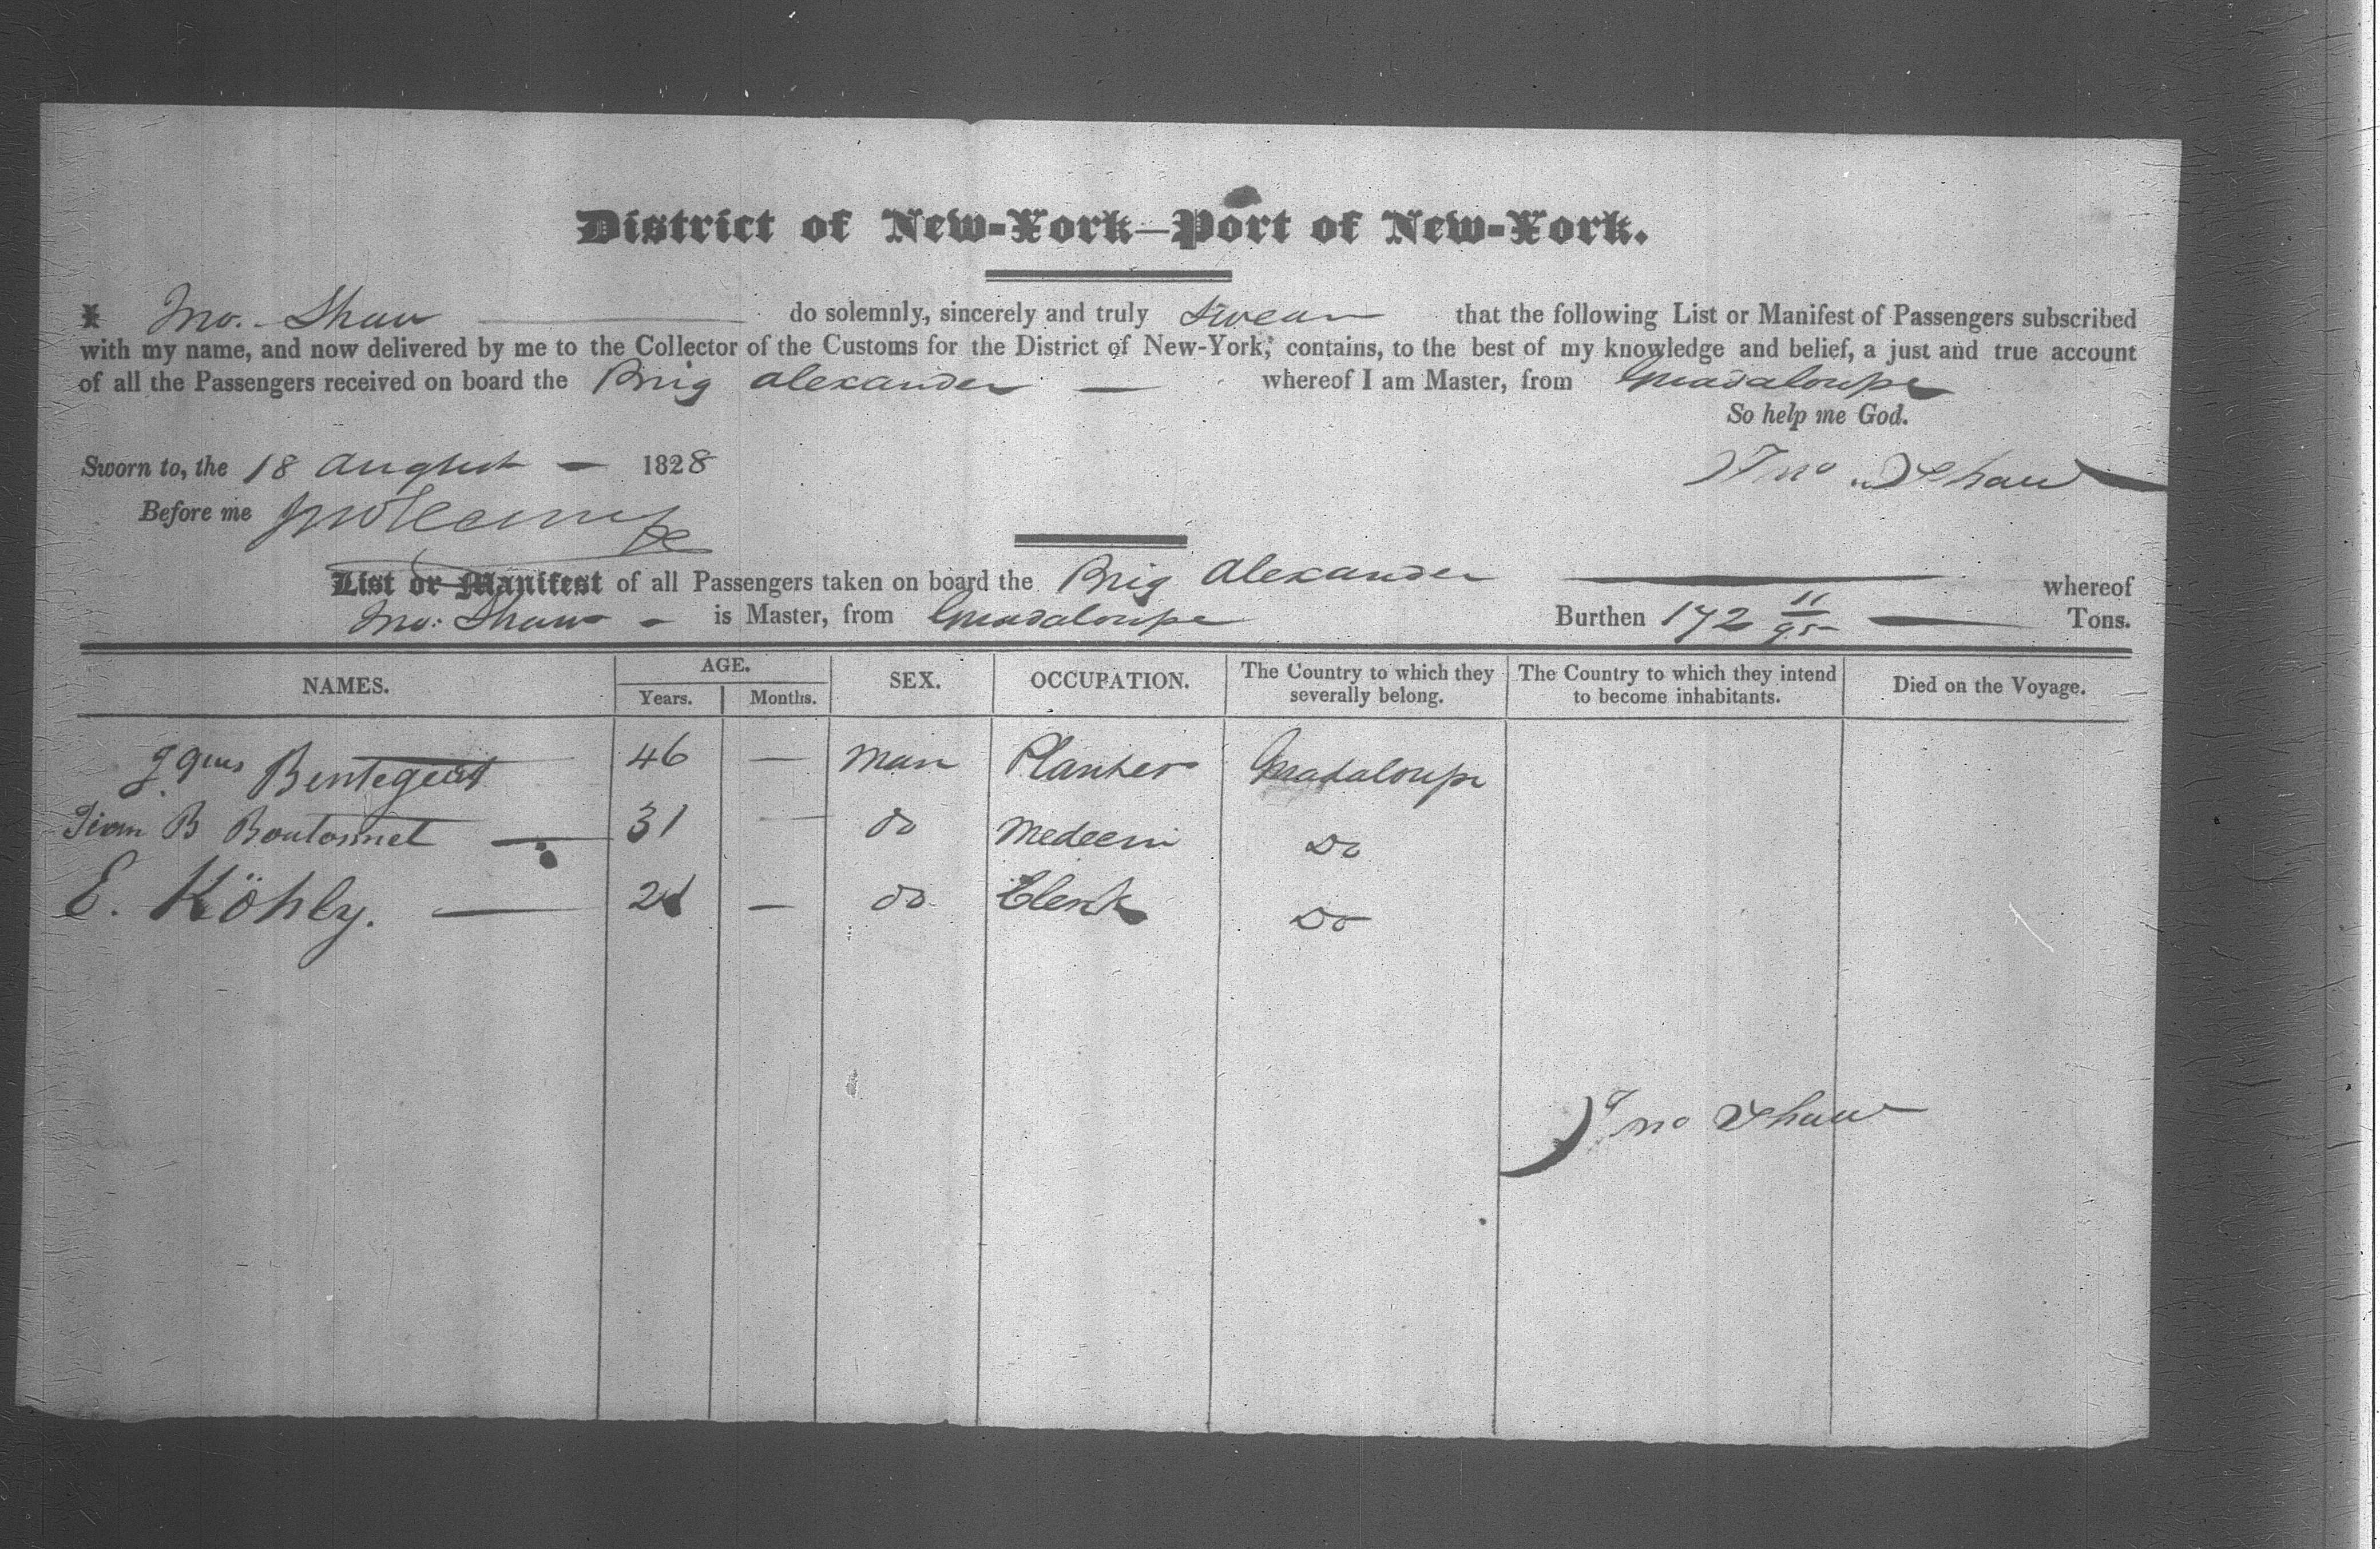 District of New-York—Port of New-York.
I Jno. Shaw do solemnly, sincerely and truly Swear that the following List or Manifest of Passengers subscribed
with my name, and now delivered by me to the Collector of the Customs for the District of New-York, contains, to the best of my knowledge and belief, a just and true account
of all the Passengers received on board the Brig Alexander — whereof I am Master, from Guadaloupe
So help me God.
Sworn to, the 18 August — 1828
Jno Shaw
Before me
List or Manifest of all Passengers taken on board the Brig Alexander — whereof
Jno: Shaw - is Master, from Guadaloupe Burthen 172 11/95 — Tons.
NAMES. AGE. SEX. OCCUPATION. The Country to which they severally belong. The Country to which they intend to become inhabitants. Died on the Voyage.
Years. Months.
46 — man Planter Guadaloupe
B Boutonnet — 31 — do Medecin Do
E. Köhly. — — do Clerk Do
Jno Shaw